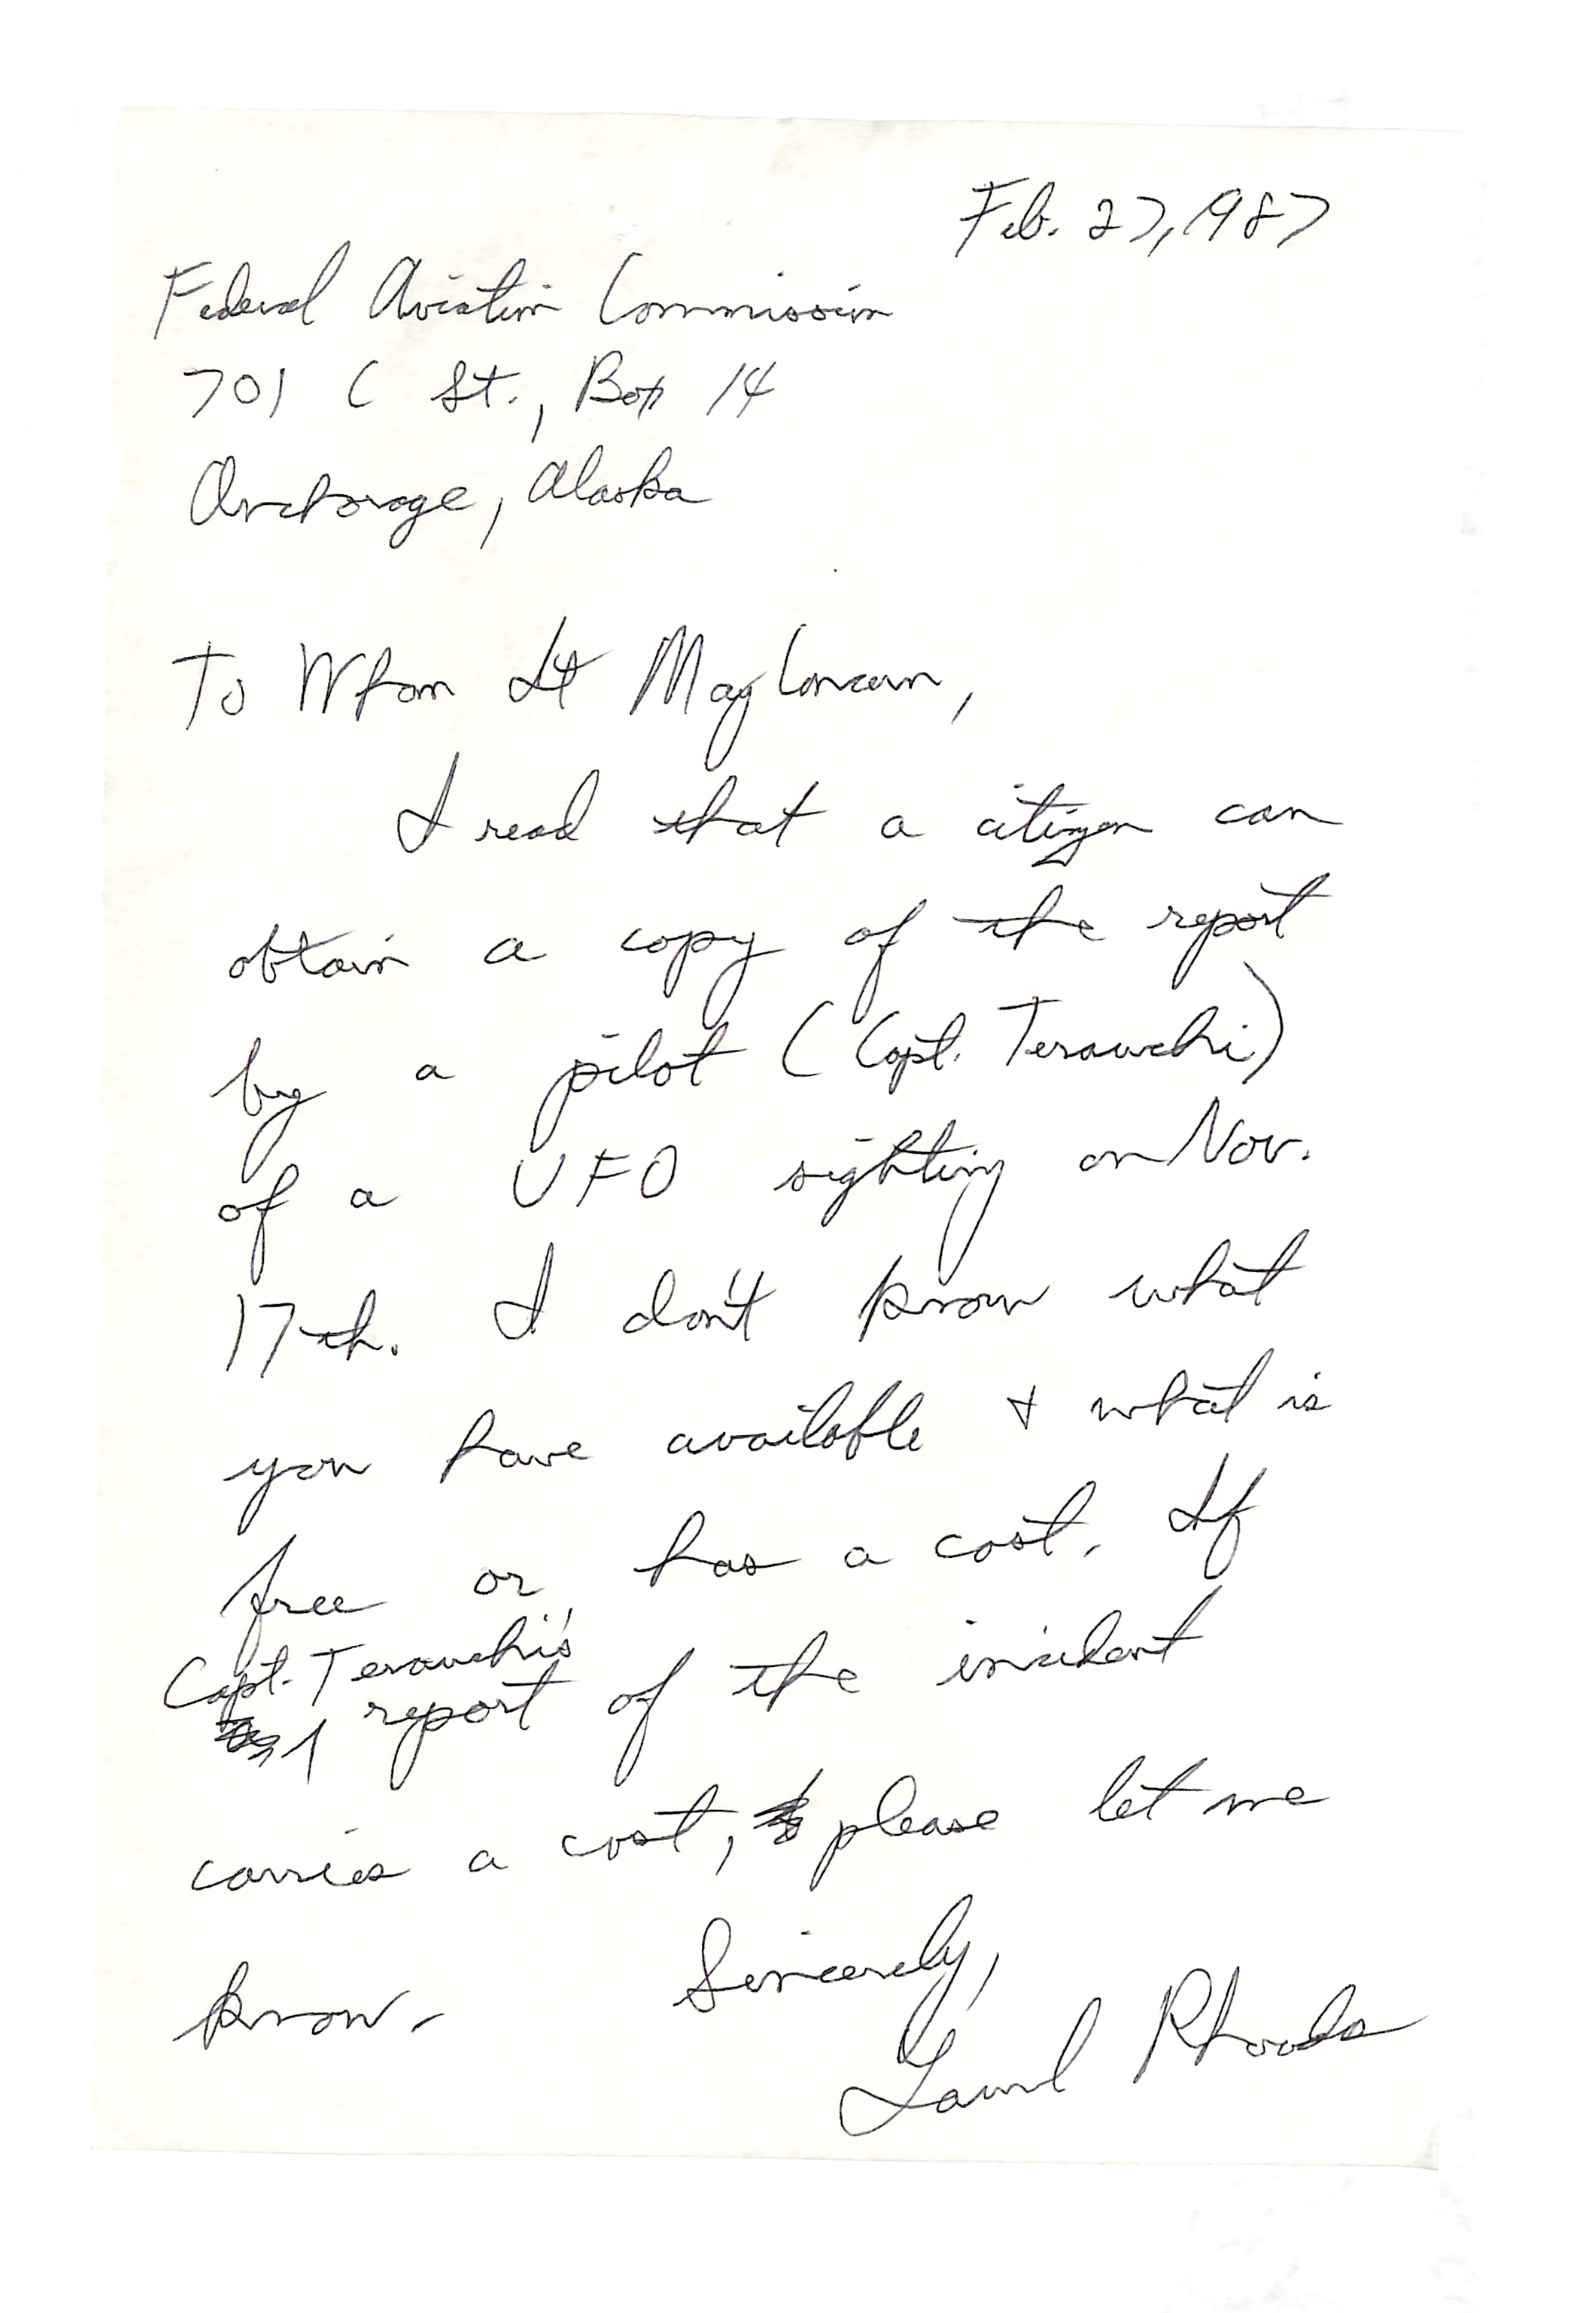 Feb. 27, 1987
Federal Aviation Commission
701 C St., Box 14
Anchorage, Alaska
To Whom It May Concern,
I read that a citizen can
obtain a copy of the report
by a pilot (Capt. Terauchi)
of a UFO sighting on Nov.
17th. I don't know what
you have available + what is
free or has a cost. If
Capt. Terauchi's
report of the incident
carries a cost, please let me
know. Sincerely,
Laurel Rhoads